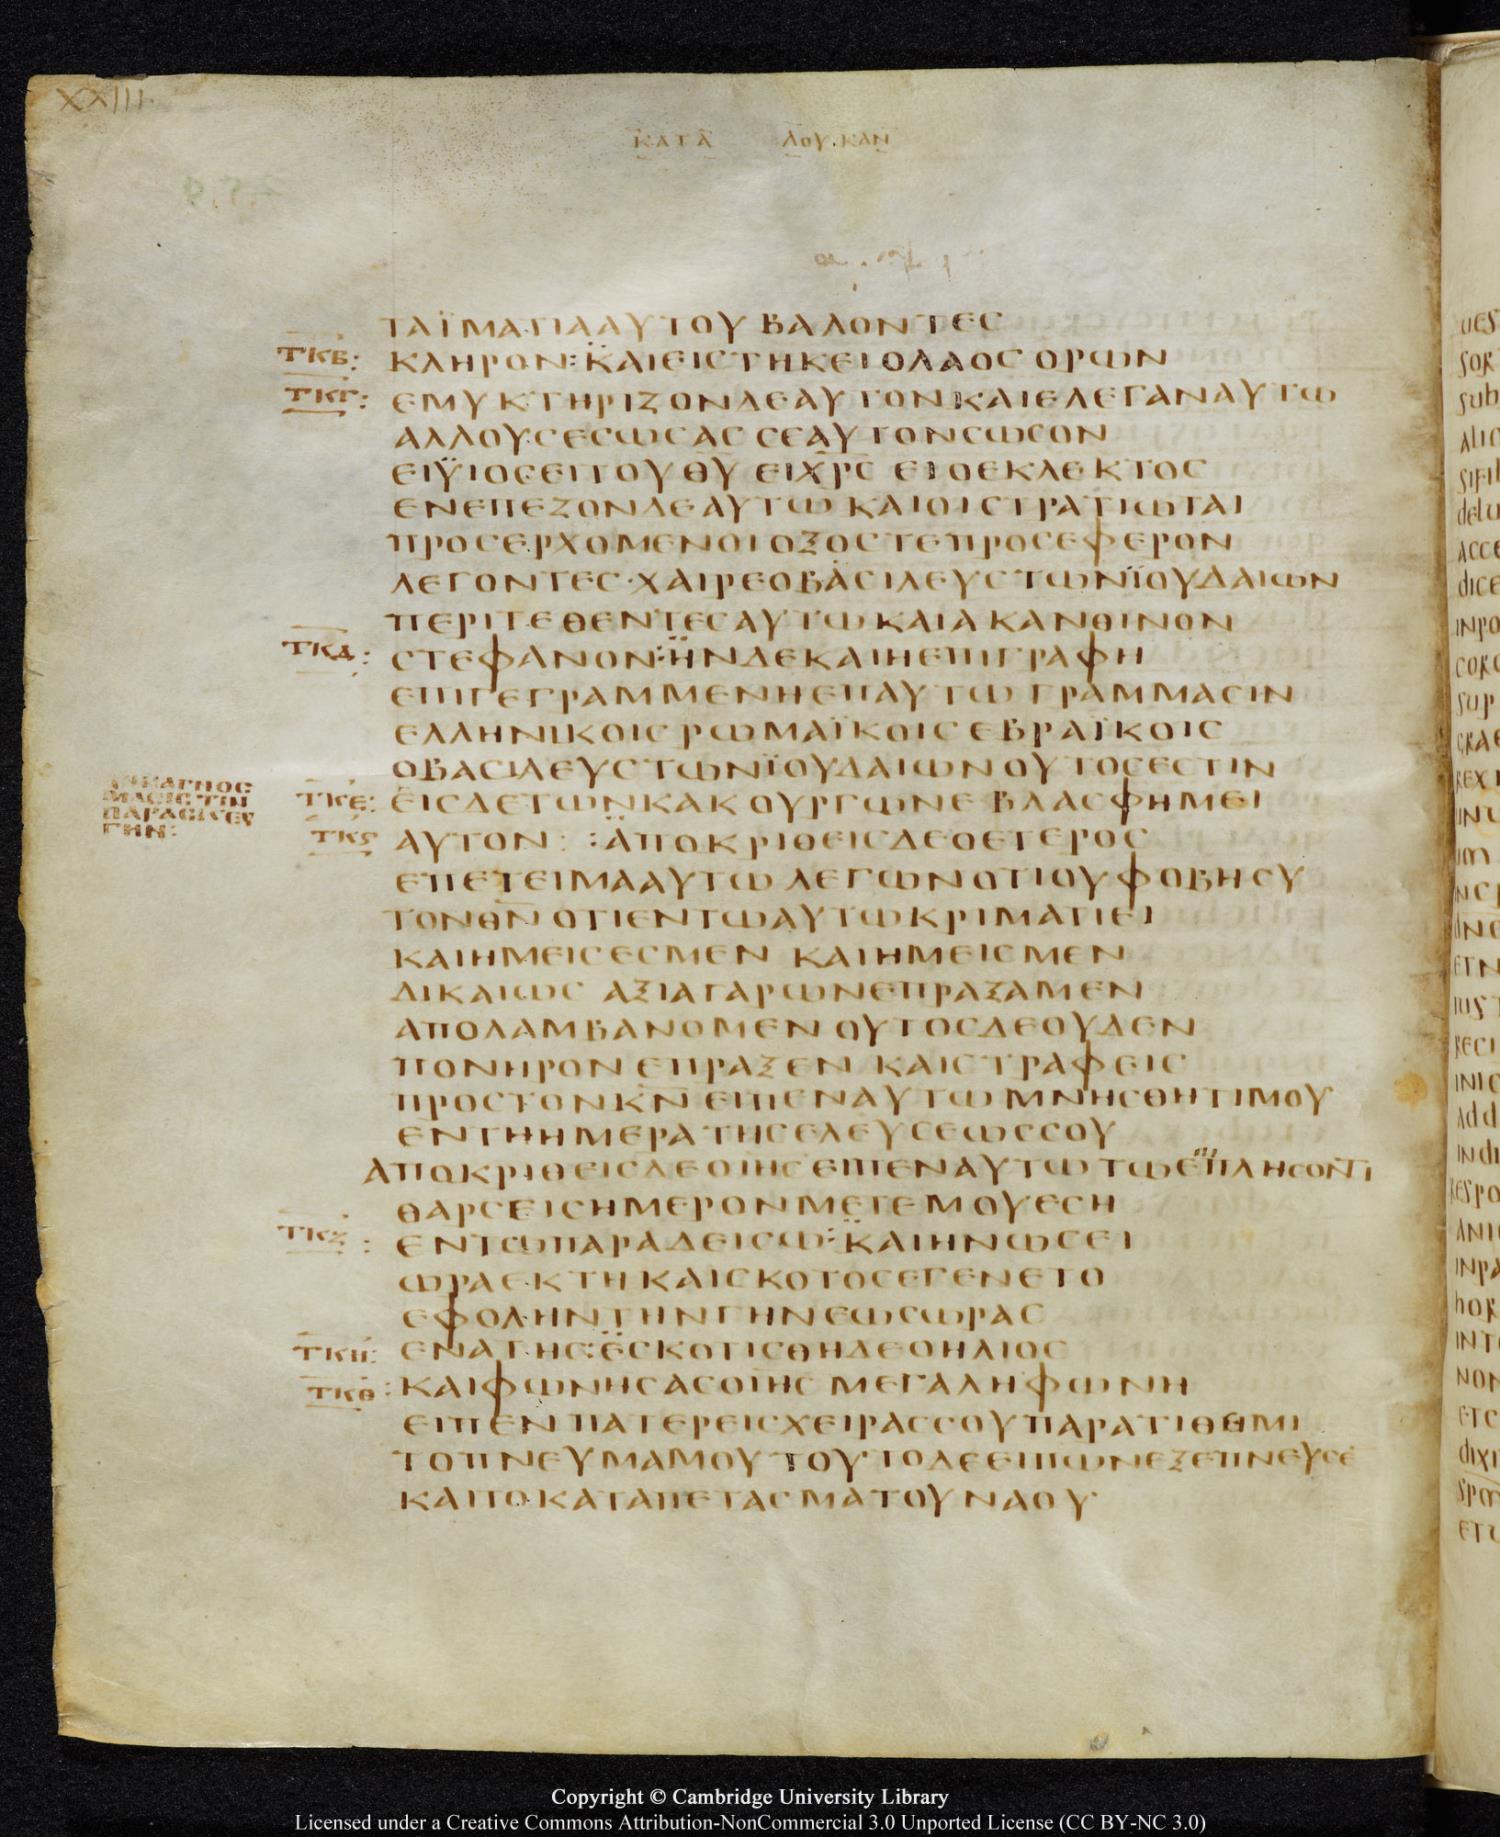 XXIII
ΚΑΤΑ ΛΟΥΚΑΝ
ΤΑΪΜΑΤΙΑΑΥΤΟΥ ΒΑΛΟΝΤΕС
ΤΚΒ: ΚΛΗΡΟΝ: ΚΑΙΕΙСΤΗΚΕΙ ΟΛΑΟС ΟΡΩΝ
ΤΚΓ: ΕΜΥΚΤΗΡΙΖΟΝΔΕΑΥΤΟΝΚΑΙΕΛΕΓΑΝΑΥΤΩ
ΑΛΛΟΥСΕСΩСΑС СΕΑΥΤΟΝСΩСΟΝ
ΕΙΫΙΟСΕΙΤΟΥ ΘΥ ΕΙΧΡС ΕΙΟΕΚΛΕΚΤΟС
ΕΝΕΠΕΖΟΝΔΕΑΥΤΩ ΚΑΙΟΙСΤΡΑΤΙΩΤΑΙ
ΠΡΟСΕΡΧΟΜΕΝΟΙ ΟΞΟСΤΕΠΡΟСΕΦΕΡΟΝ
ΛΕΓΟΝΤΕС·ΧΑΙΡΕΟΒΑСΙΛΕΥСΤΩΝΪΟΥΔΑΙΩΝ
ΠΕΡΙΤΕΘΕΝΤΕСΑΥΤΩ ΚΑΙΑΚΑΝΘΙΝΟΝ
ΤΚΔ: СΤΕΦΑΝΟΝ: ΗΝΔΕΚΑΙΗΕΠΙΓΡΑΦΗ
ΕΠΙΓΕΓΡΑΜΜΕΝΗΕΠΑΥΤΩ ΓΡΑΜΜΑСΙΝ
ΕΛΛΗΝΙΚΟΙС ΡΩΜΑΪΚΟΙС ΕΒΡΑΪΚΟΙС
ΟΒΑСΙΛΕΥСΤΩΝΪΟΥΔΑΙΩΝ ΟΥΤΟСΕСΤΙΝ
ΠΑΡΑСΚΕΥ
ΤΚΕ: ΕΙСΔΕΤΩΝΚΑΚΟΥΡΓΩΝΕΒΛΑСΦΗΜΕΙ
ΤΚϚ ΑΥΤΟΝ: :ΑΠΟΚΡΙΘΕΙСΔΕΟΕΤΕΡΟС
ΕΠΕΤΕΙΜΑΑΥΤΩ ΛΕΓΩΝΟΤΙΟΥΦΟΒΗСΥ
ΤΟΝΘΝ ΟΤΙΕΝΤΩΑΥΤΩΚΡΙΜΑΤΙΕΙ
ΚΑΙΗΜΕΙСΕСΜΕΝ ΚΑΙΗΜΕΙСΜΕΝ
ΔΙΚΑΙΩС ΑΞΙΑΓΑΡΩΝΕΠΡΑΞΑΜΕΝ
ΑΠΟΛΑΜΒΑΝΟΜΕΝ ΟΥΤΟСΔΕΟΥΔΕΝ
ΠΟΝΗΡΟΝ ΕΠΡΑΞΕΝ ΚΑΙСΤΡΑΦΕΙС
ΠΡΟСΤΟΝΚΝ ΕΙΠΕΝΑΥΤΩ ΜΝΗСΘΗΤΙΜΟΥ
ΕΝΤΗΗΜΕΡΑΤΗСΕΛΕΥСΕΩССΟΥ
ΑΠΟΚΡΙΘΕΙСΔΕΟΙΗС ΕΙΠΕΝΑΥΤΩ ΤΩΕΠΛΗСΟΝΤΙ
ΘΑΡСΕΙСΗΜΕΡΟΝΜΕΤΕΜΟΥΕСΗ
ΤΚΖ: ΕΝΤΩΠΑΡΑΔΕΙСΩ: ΚΑΙΗΝΩСΕΙ
ΩΡΑΕΚΤΗ ΚΑΙСΚΟΤΟСΕΓΕΝΕΤΟ
ΕΦΟΛΗΝΤΗΝΓΗΝΕΩСΩΡΑС
ΤΚΗ: ΕΝΑΤΗС: ΕСΚΟΤΙСΘΗΔΕΟΗΛΙΟС
ΤΚΘ: ΚΑΙΦΩΝΗСΑСΟΙΗС ΜΕΓΑΛΗΦΩΝΗ
ΕΙΠΕΝ ΠΑΤΕΡΕΙСΧΕΙΡΑССΟΥΠΑΡΑΤΙΘΕΜΙ
ΤΟΠΝΕΥΜΑΜΟΥ ΤΟΥΤΟΔΕΕΙΠΩΝΕΞΕΠΝΕΥСΕ
ΚΑΙΤΟΚΑΤΑΠΕΤΑСΜΑΤΟΥΝΑΟΥ
Copyright © Cambridge University Library
Licensed under a Creative Commons Attribution-NonCommercial 3.0 Unported License (CC BY-NC 3.0)